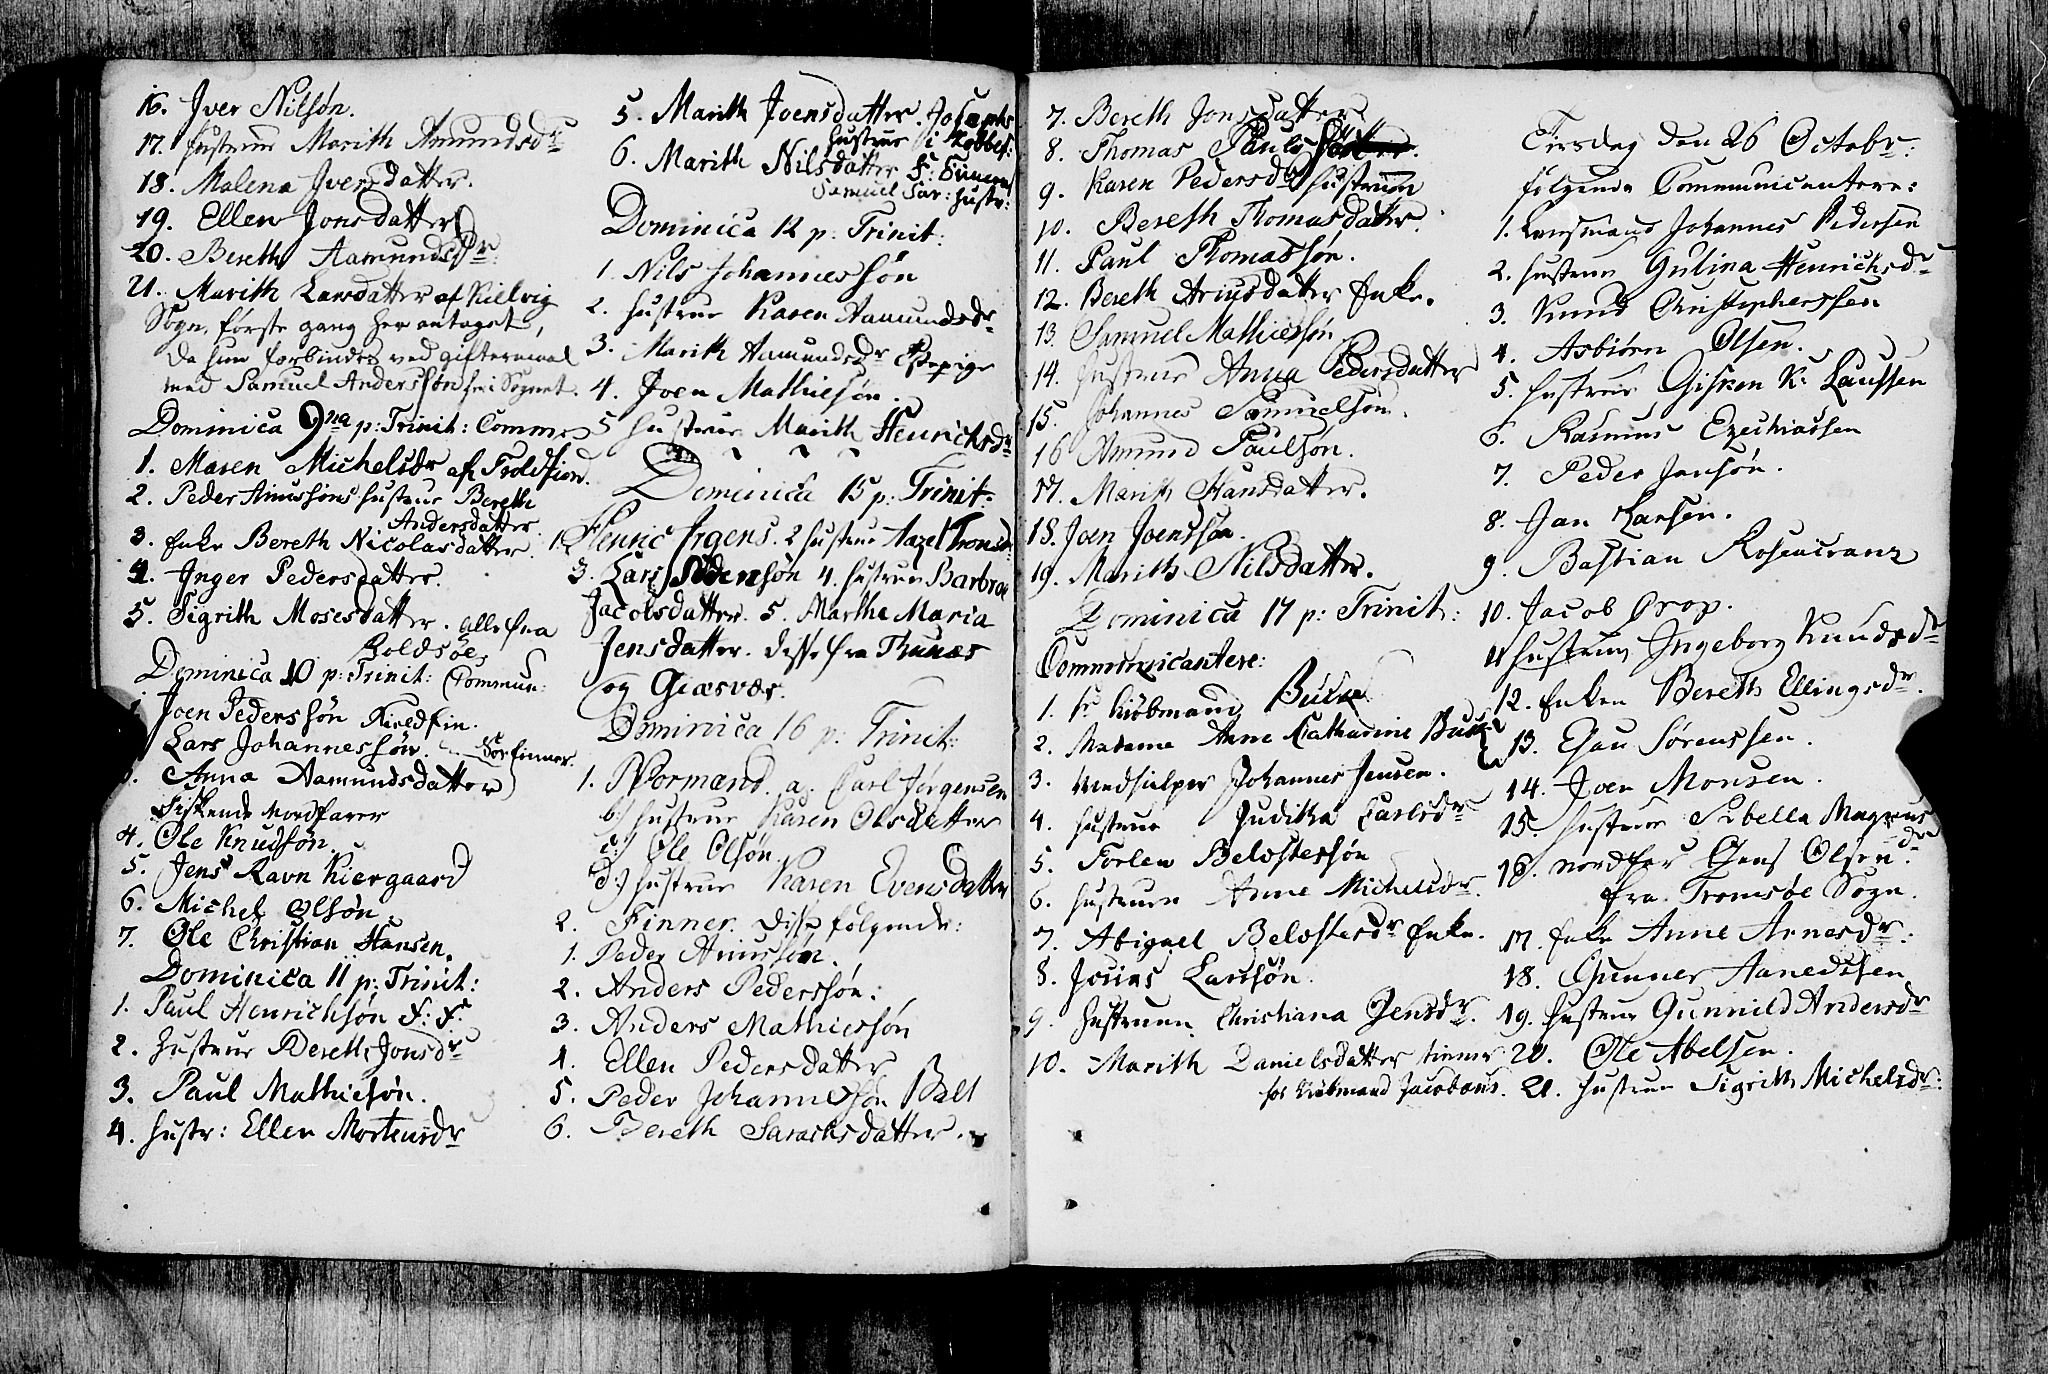 16. Iver Nilsøn.
17. hustrue Marith Amundsdr
18. Malena Iversdatter.
19. Ellen Jonsdatter
20. Bereth Aamundsdr:
21. Marith Larsdatter af Kielvig
Sogn, første gang her antaget,
da hun forbindes ved giftermaal
med Samuel Anderssøn her i Sognet.
Dominica 9na p: Trinit: Comm:
1. Maren Michelsdr af Troldfiord.
2. Peder Aniussøns hustrue Bereth
Andersdatter
3. Enke Bereth Nicolasdatter.
4. Inger Pedersdatter.
5. Sigrith Mosesdatter. alle fra
Roldsøe.
Dominica 10 p: Trinit: Commun:
1. Joen Pederssøn
Lars Johannessøn. Sørfinner.
3. Anna Aamundsdatter
Fiskende Nordfarer
4. Ole Knudsøn.
5. Jens Ravn Kiergaard
6. Michel Olsøn
7. Ole Christian Hansen.
Dominica 11 p: Trinit:
1. Paul Henrichsøn F: F.
2. hustrue Bereth Jonsdr
3. Paul Mathiesøn.
4. hustr: Ellen Mortensdr
5. Marith Joensdatter. Josephs
hustrue i Kobbef:
6. Marith Nilsdatter F: Finnens
Samuel Sar: hustr:
Dominica 12 p: Trinit:
1. Nils Johannessøn
2. hustrue Karen Aamundsdr
3. Marith Aamundsdr Pige
4. Joen Mathiesøn.
5 hustrue Marith Henrichsdr
Dominica 15 p: Trinit:
1. Henric Irgens. 2 hustrue
3. Lars Pedersøn 4. hustrue Barbroe
Jacobsdatter. 5. Marthe Maria
Jensdatter. disse fra Thunæs
og Giæsvær.
Dominica 16 p: Trinit:
1. Normænd. a. Carl Jørgensen
b:) hustrue Karen Olsdatter
c:) Ole Olsøn.
d:) hustrue Karen Evensdatter
2. Finner. disse følgende:
1. Peder Aniussøn.
2. Anders Pederssøn:
3. Anders Mathiessøn
4. Ellen Pedersdatter
5. Peder Johannessøn Balt
6. Bereth Sarachsdatter.
7. Bereth Jonsdatter
8. Thomas Pauls
9. Karen Pedersdr hustrue
10. Bereth Thomasdatter.
11. Paul Thomassøn.
12. Bereth Ariusdatter Enke.
13. Samuel Mathiessøn
14. hustrue Anna Pedersdatter
15. Johannes Samuelsøn.
16 Amund Paulsøn.
17. Marith Hansdatter.
18. Joen Joenssøn.
19. Marith Nilsdatter.
Dominica 17 p: Trinit:
Communicantere:
1. Hr Kiøbmand Buck
2. Madame Anne Catharine Buck
3. Medhielper Johannes Jensen.
4. hustrue Juditha Carlsdr
5. Torlen Belostersøn
6. hustruen Anne Michelsdr.
7. Abigael Belostersdr Enke.
8. Jonas Larssøn.
9. hustruen Christiana Jensdr.
10. Marith Danielsdatter tiener
hos Kiøbmand Jacobæus.
Tirsdag den 26 Octobr:
følgende Communicantere:
1. Lensmand Johannes Pedersen
2. hustrue Gulina Henrichsdr
3. Knud Christophersen
4. Asbiørn Olsen.
5. hustrue Gisken K: Laussen
6. Rasmus Ezechiassen
7. Peder Jansøn.
8. Jan Larsen.
9. Bastian Rosencranz
10. Jacob Grop.
11 hustrue Ingeborg Knudsdr
12. Enken Bereth Ellingsdr.
13. Esau Sørenssen.
14. Joen Monsen.
15. hustrue Sibella Magnus
dr
16. nordfar Jens Olsen.
fra Tromsøe Sogn.
17. Enke Anne Arnesdr:
18. Gunner Aanedssen
19. hustrue Gunnild Andersdr
20. Ole Abelsen.
21. hustrue Sigrith Michelsdr: